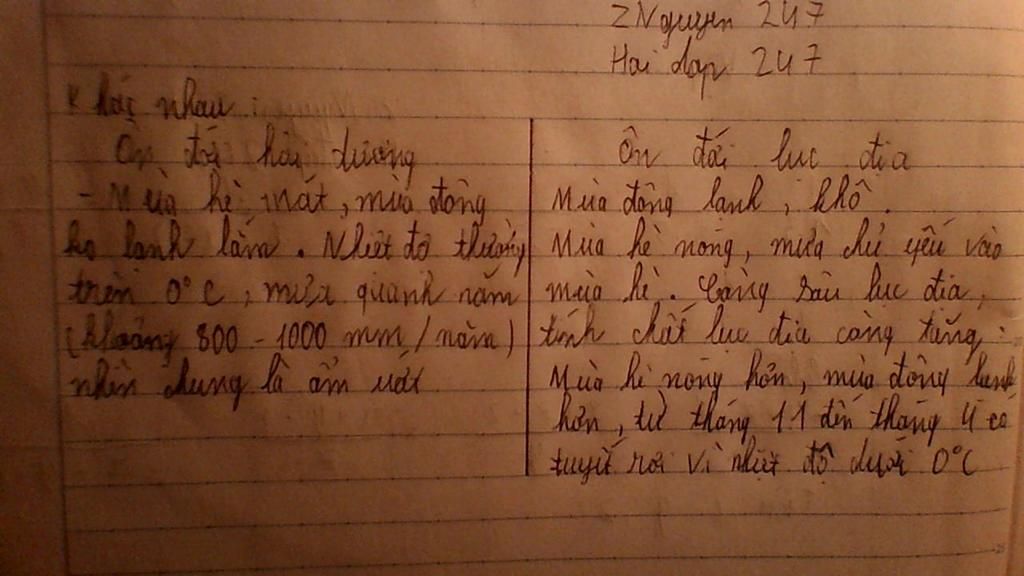 ZNguyen 247
Hoi dap 247
Khác nhau :
Ôn đới hải dương
- Mùa hè mát, mùa đông
ko lanh lắm. Nhiệt độ thường
trên 0°C, mưa quanh năm
(khoảng 800 - 1000 mm/năm)
nhìn chung là ẩm ướt
Ôn đới lục địa
Mùa đông lạnh, khô.
Mùa hè nóng, mưa chủ yếu vào
mùa hè. Càng sâu lục địa,
tính chất lục địa càng tăng :
Mùa hè nóng hơn, mùa đông lạnh
hơn, từ tháng 11 đến tháng 4 có
tuyết rơi vì nhiệt độ dưới 0°C